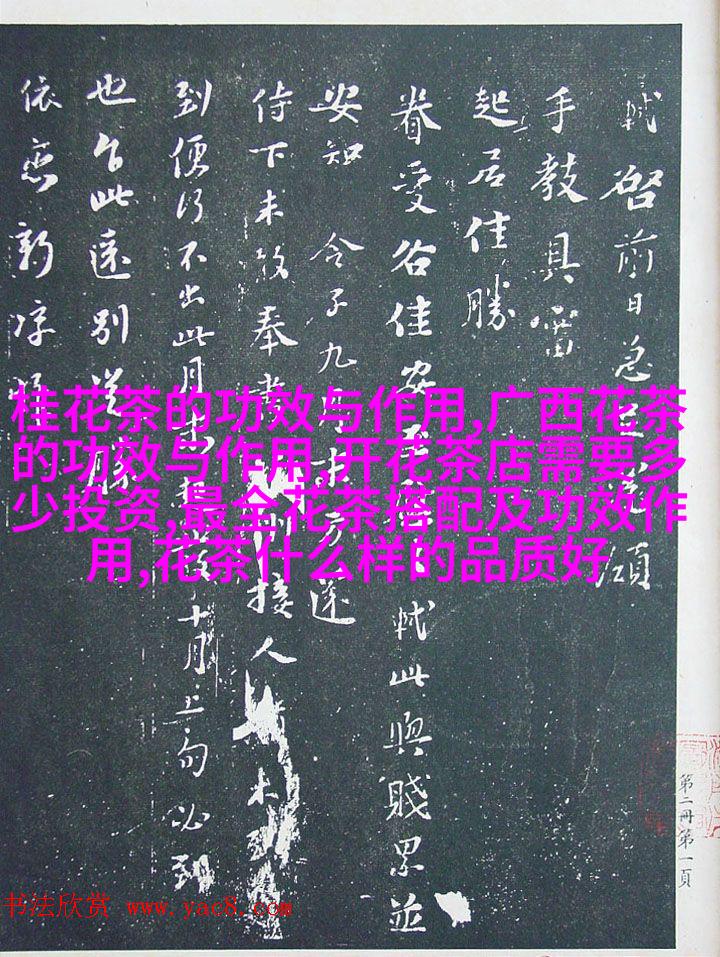 軾啓前日急足還領
手教具審
起居佳勝
眷愛各佳安軾此與賤累並
安知 令子九
侍下未敢奉接人未到
到便行不出此月十月上旬必到
也乍此遠別
依戀新凉惟
桂花茶的功效与作用,广西花茶
的功效与作用,开花茶店需要多
少投资,最全花茶搭配及功效作
用,花茶什么样的品质好
第二冊第一頁
书法欣赏 www.yac8.com